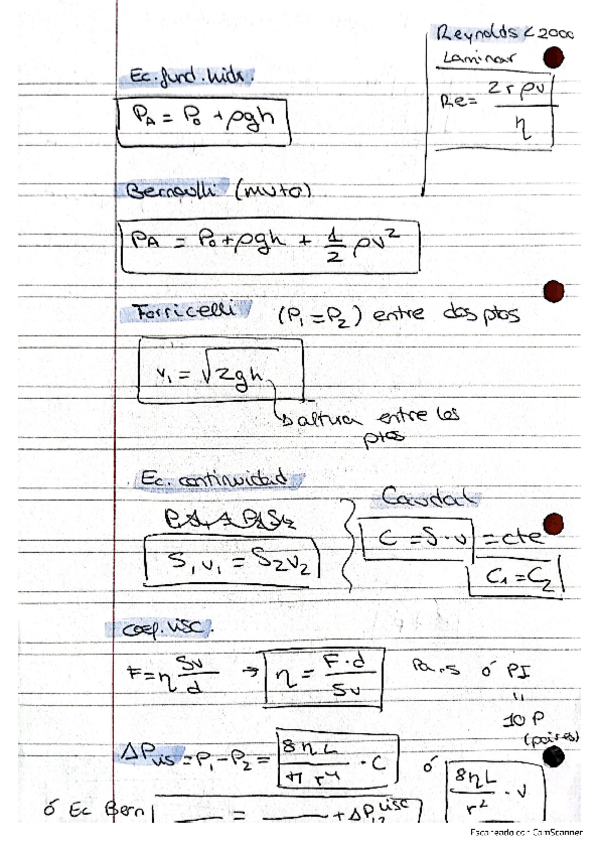 Reynolds < 2000
Laminar
Re = 2rρv / η
Ec. fund. hidr.
P_A = P_0 + ρgh
Bernoulli (mvto)
P_A = P_0 + ρgh + 1/2 ρv²
Torricelli (P_1 = P_2) entre dos ptos
v_1 = √2gh
altura entre los
ptos
Ec. continuidad
S_1 v_1 = S_2 v_2
Caudal
C = S · v = cte
C_1 = C_2
coef. visc.
F = η Sv/d → η = F·d / Sv Pa.s ó PI
"
10 P
ΔP_vis = P_1 - P_2 = 8ηL / π r⁴ · C ó 8ηL / r² · v
ó Ec Bern = + ΔP_12 visc
Escaneado con CamScanner